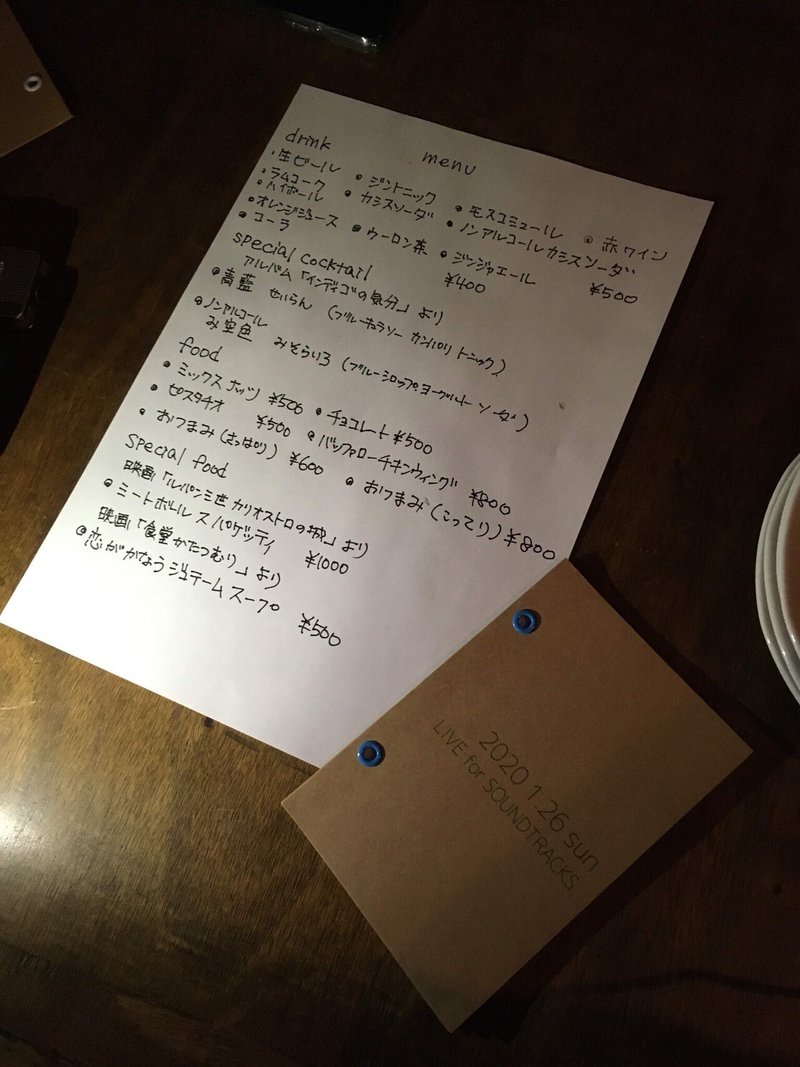 menu
drink
・生ビール ・ジントニック ・モスコミュール ・赤ワイン
・ラムコーク ・カシスソーダ ・ノンアルコールカシスソーダ
・ハイボール ¥500
・オレンジジュース ・ウーロン茶 ・ジンジャエール
・コーラ ¥400
special cocktail
アルバム「インディゴの気分」より
・青藍 せいらん (ブルーキュラソー カンパリ トニック)
・ノンアルコール
み空色 みそらいろ (ブルーシロップ・ヨーグルト ソーダ)
food
・ミックスナッツ ¥500 ・チョコレート ¥500
・ピスタチオ ¥500 ・バッファローチキンウィング ¥800
・おつまみ(さっぱり) ¥600 ・おつまみ(こってり) ¥800
special food
映画「ルパン三世 カリオストロの城」より
・ミートボールスパゲッティ ¥1000
映画「食堂かたつむり」より
・恋がかなうジュテームスープ ¥500
2020 1.26 sun
LIVE for SOUNDTRACKS